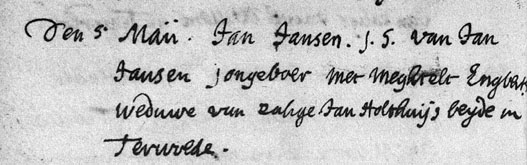 Den 5 Maii. Jan Jansen. j. s. van Jan
Jansen jongeboer met Meghtelt Engbert
weduwe van zalige Jan Holthuijs beyde in
Tervwede.